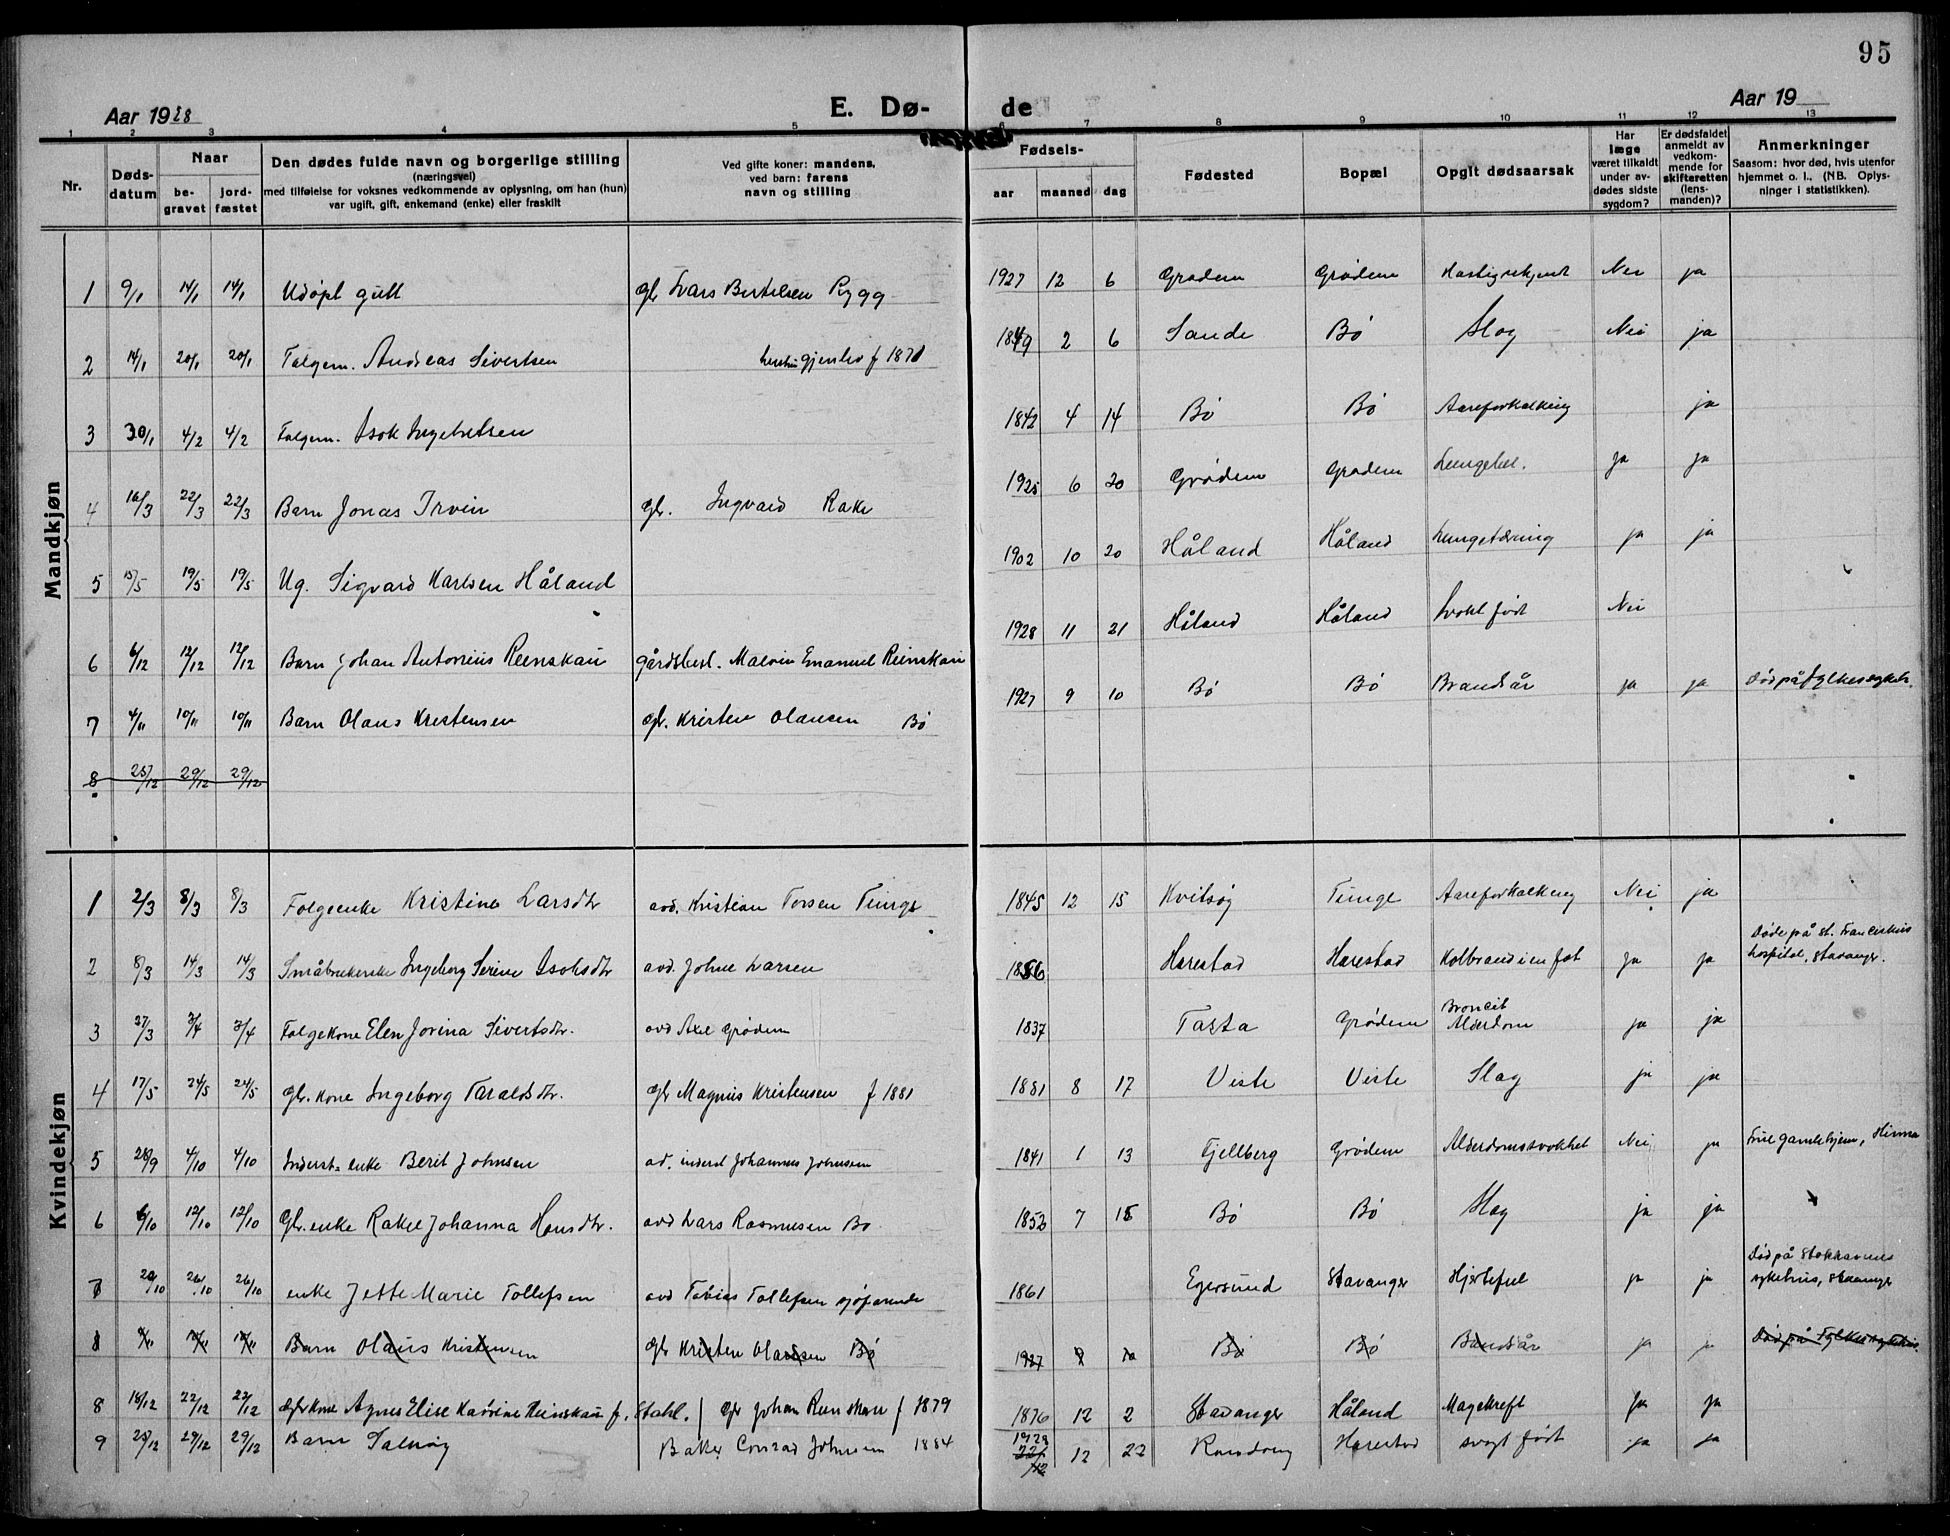 95
Aar 1928 E. Dø- de Aar 19
1 2 3 4 5 6 7 8 9 10 11 12 13
Nr. Døds-datum Naar be-gravet jord-fæstet Den dødes fulde navn og borgerlige stilling (næringsvei) med tilføielse for voksnes vedkommende av oplysning, om han (hun) var ugift, gift, enkemand (enke) eller fraskilt Ved gifte koner: mandens, ved barn: farens navn og stilling Fødsels- aar maaned dag Fødested Bopæl Opgit dødsaarsak Har læge været tilkaldt under av-dødes sidste sygdom? Er dødsfaldet anmeldt av vedkom-mende for skifteretten (lens-manden)? Anmerkninger Saasom: hvor død, hvis utenfor hjemmet o. l., (NB. Oplys-ninger i statistikken).
Mandkjøn
1 9/1 14/1 14/1 Udøpt gutt gbr Lars Bertelsen Rygg 1927 12 6 Grødem Grødem Hastig sykjent Nei ja
2 14/1 20/1 20/1 Følgem. Andreas Sivertsen gjenlev f 1871 1849 2 6 Sande Bø Slag Nei ja
3 30/1 4/2 4/2 Følgem. Isak Ingebretsen 1842 4 14 Bø Bø Aareforkalkning ja
4 16/3 22/3 22/3 Barn Jonas Irvin gbr. Ingvard Rake 1925 6 20 Grødem Grødem Lungebet. ja ja
5 15/5 19/5 19/5 Ug. Sigvard Karlsen Håland 1902 10 20 Håland Håland Lungetæring ja ja
6 6/12 12/12 12/12 Barn Johan Antonius Reinskau gårdsbest. Malvin Emanuel Reinskau 1928 11 21 Håland Håland svakt født Nei
7 4/11 10/11 10/11 Barn Olaus Kristensen gbr. Kristen Olausen Bø 1927 9 10 Bø Bø Brandsår ja ja Død på Fylkessykeh.
8 25/12 29/12 29/12
Kvindekjøn
1 2/3 8/3 8/3 Følgeenke Kristine Larsdtr avd. Kristian Torsen Tunge 1845 12 15 Kvitsøy Tunge Aareforkalkning Nei ja
2 8/3 14/3 14/3 Småbrukerenke Ingeborg Serine Isaksdtr avd. Johne Larsen 1856 Harestad Harestad Kolbrand i en fot ja ja Døde på St. Franciskus hospital, Stavanger.
3 27/3 3/4 3/4 Følgekone Elen Jorina Sivertsdtr. avd Axel Grødem 1837 Tasta Grødem Broncit Alderdom ja ja
4 17/5 24/5 24/5 Gbr. kone Ingeborg Taraldsdtr. Gbr Magnus Kristensen f 1881 1881 8 17 Viste Viste Slag ja ja
5 28/9 4/10 4/10 Inderst. enke Berit Johnsen ad. inderst Johannes Johnsen 1841 1 13 Fjellberg Grødem Alderdomssvakhet Nei ja Frue gamlehjem, Hinna
6 6/10 12/10 12/10 Gbr. enke Rakel Johanna Hansdtr. avd Lars Rasmussen Bø 1853 7 15 Bø Bø Slag ja ja
7 20/10 26/10 26/10 enke Jette Marie Tollefsen avd Tobias Tollefsen sjøfarende 1861 Egersund Stavanger Hjertefeil ja ja Død på Stokkavnes sykehus, Stavanger
8 4/11 10/11 10/11 Barn Olaus Kristensen gbr Kristen Olausen Bø 1927 9 10 Bø Bø Brandsår ja ja Død på Fylkessykehus.
8 18/12 22/12 22/12 Gbrkone Agnes Elise Katrine Reinskau f. Stahl. / Gbr Johan Reinskau f 1879 1876 12 2 Stavanger Håland Magekreft ja ja
9 25/12 29/12 29/12 Barn Solnøy Baker Conrad Johnsen 1884 1928 22/12 12 22 Randaberg Harestad svagt født ja ja